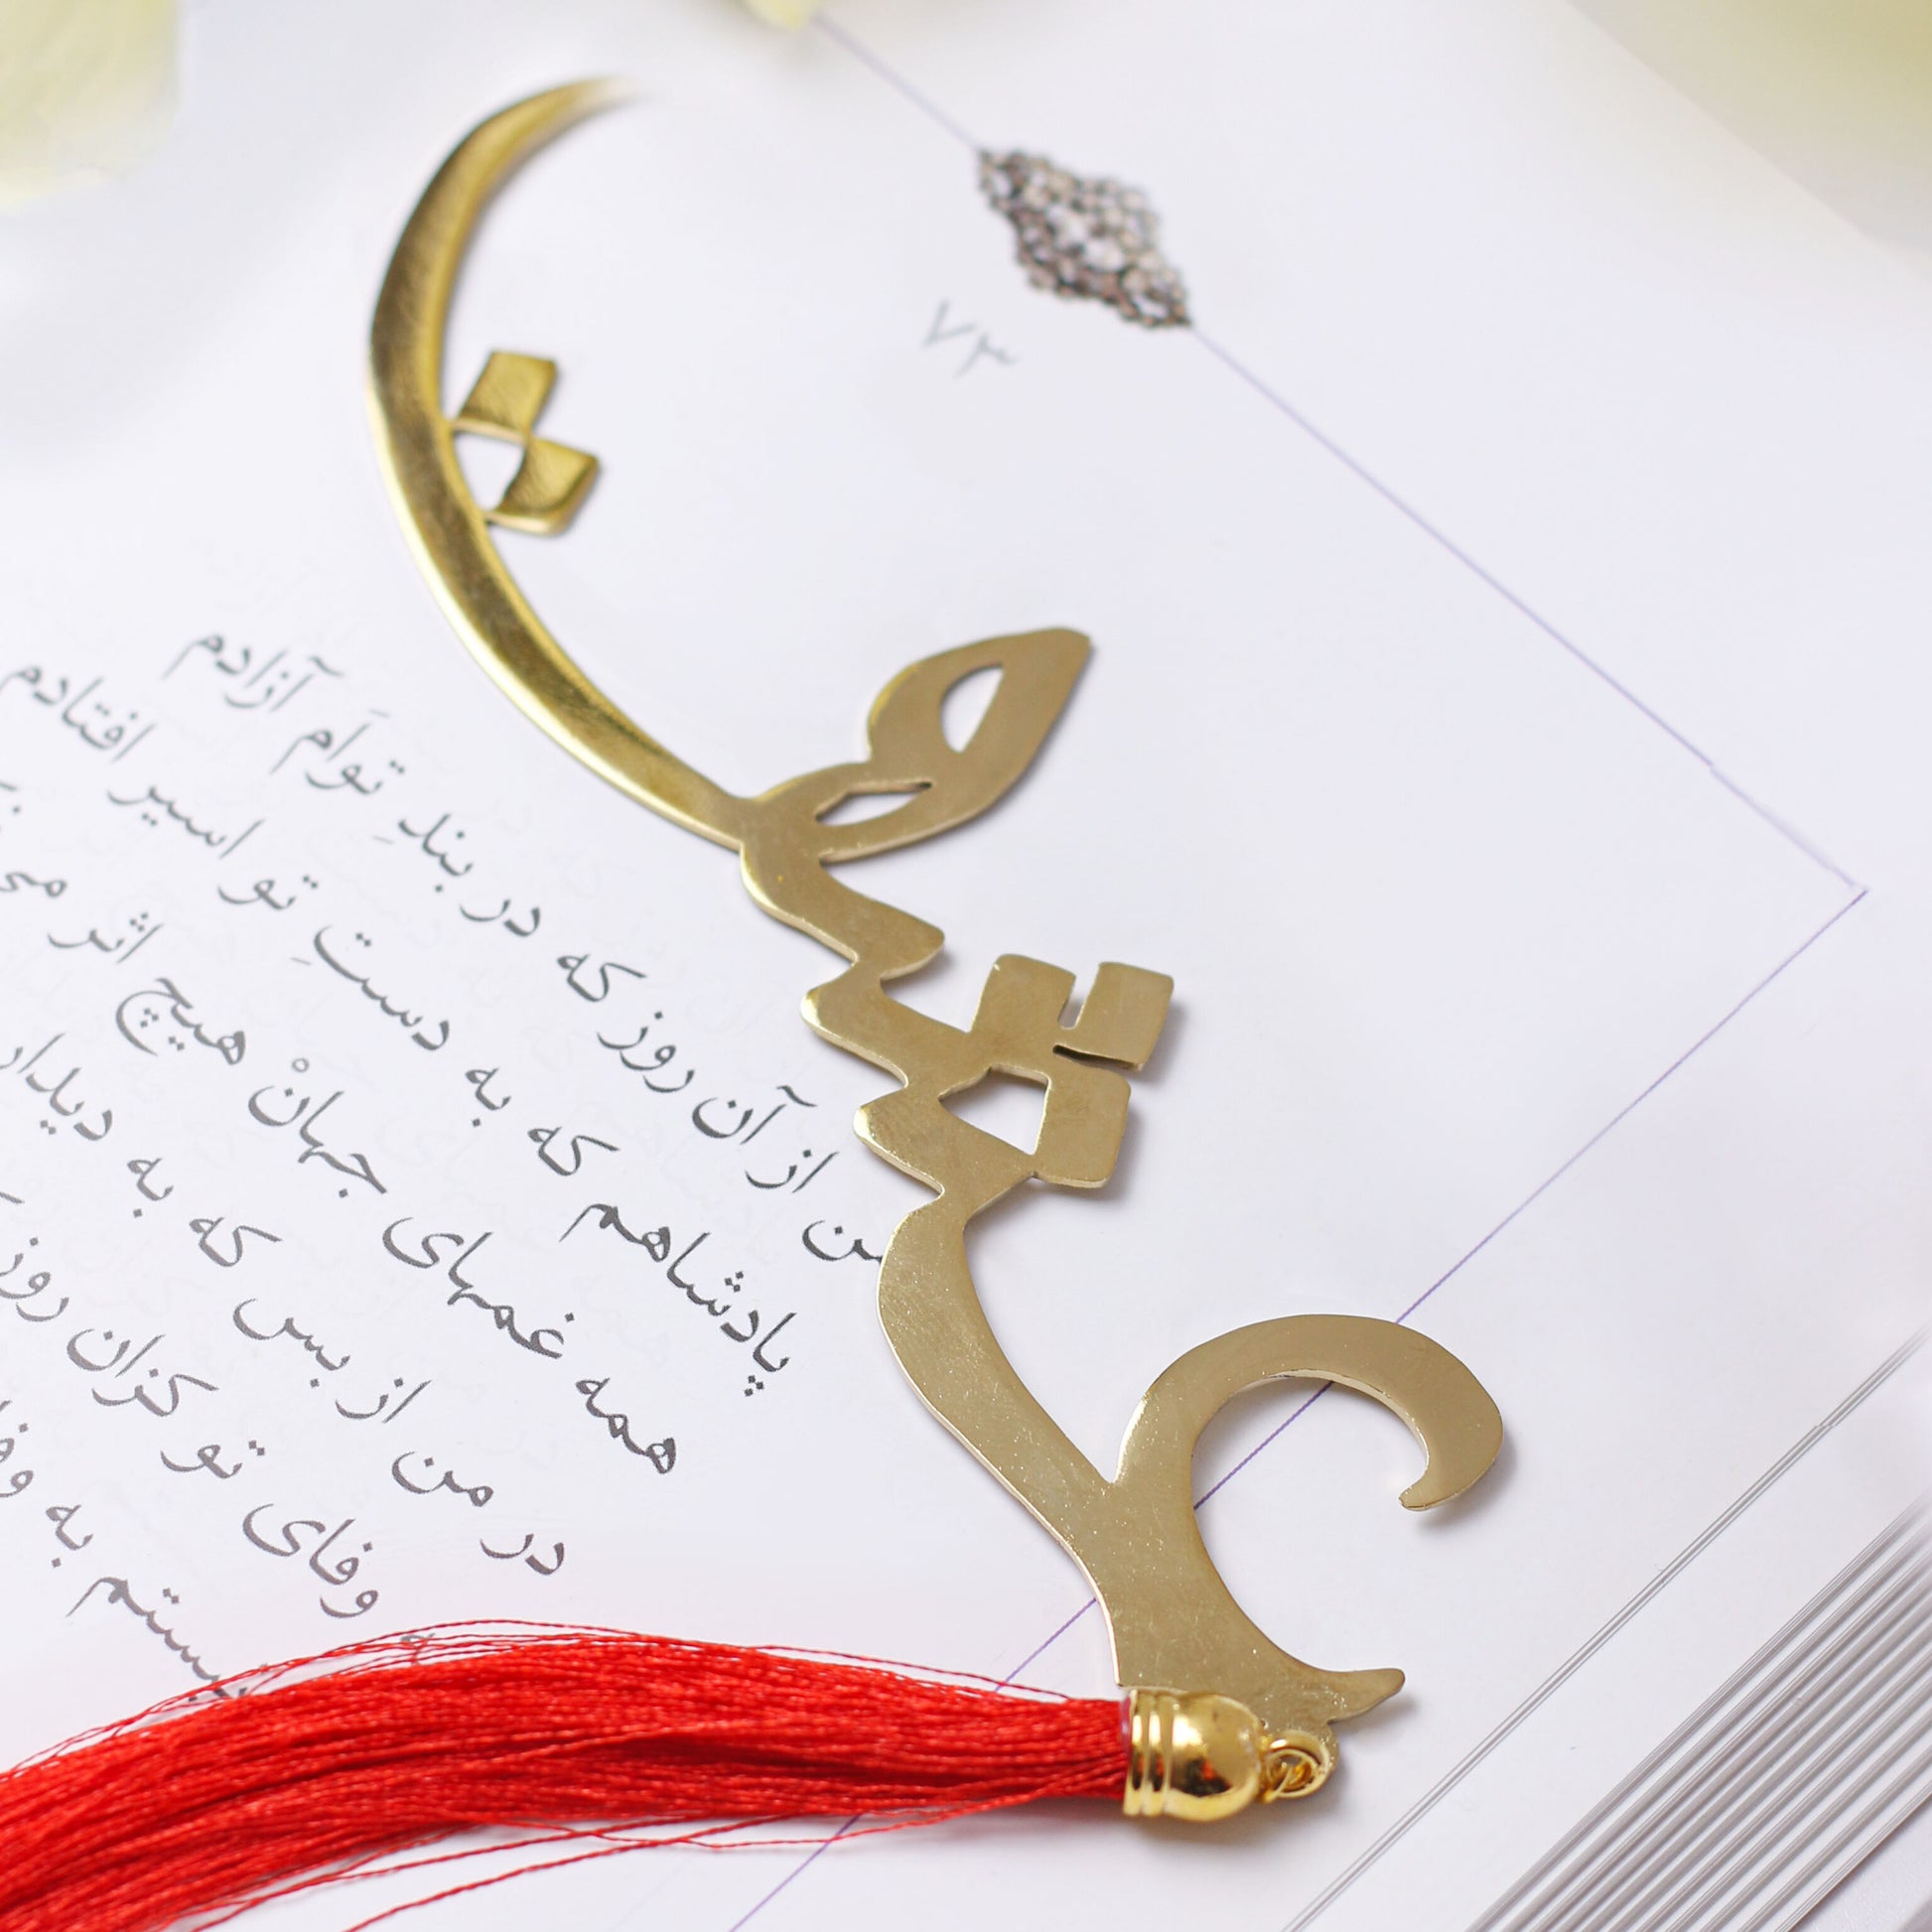 ۷۳
عشق
من از آن روز که در بندِ تواَم آزادم
پادشاهم که به دستِ تو اسیر افتادم
همه غمهای جهانْ هیچ اثر
در من از بس که به دیدار
وفای تو کزان روز
به